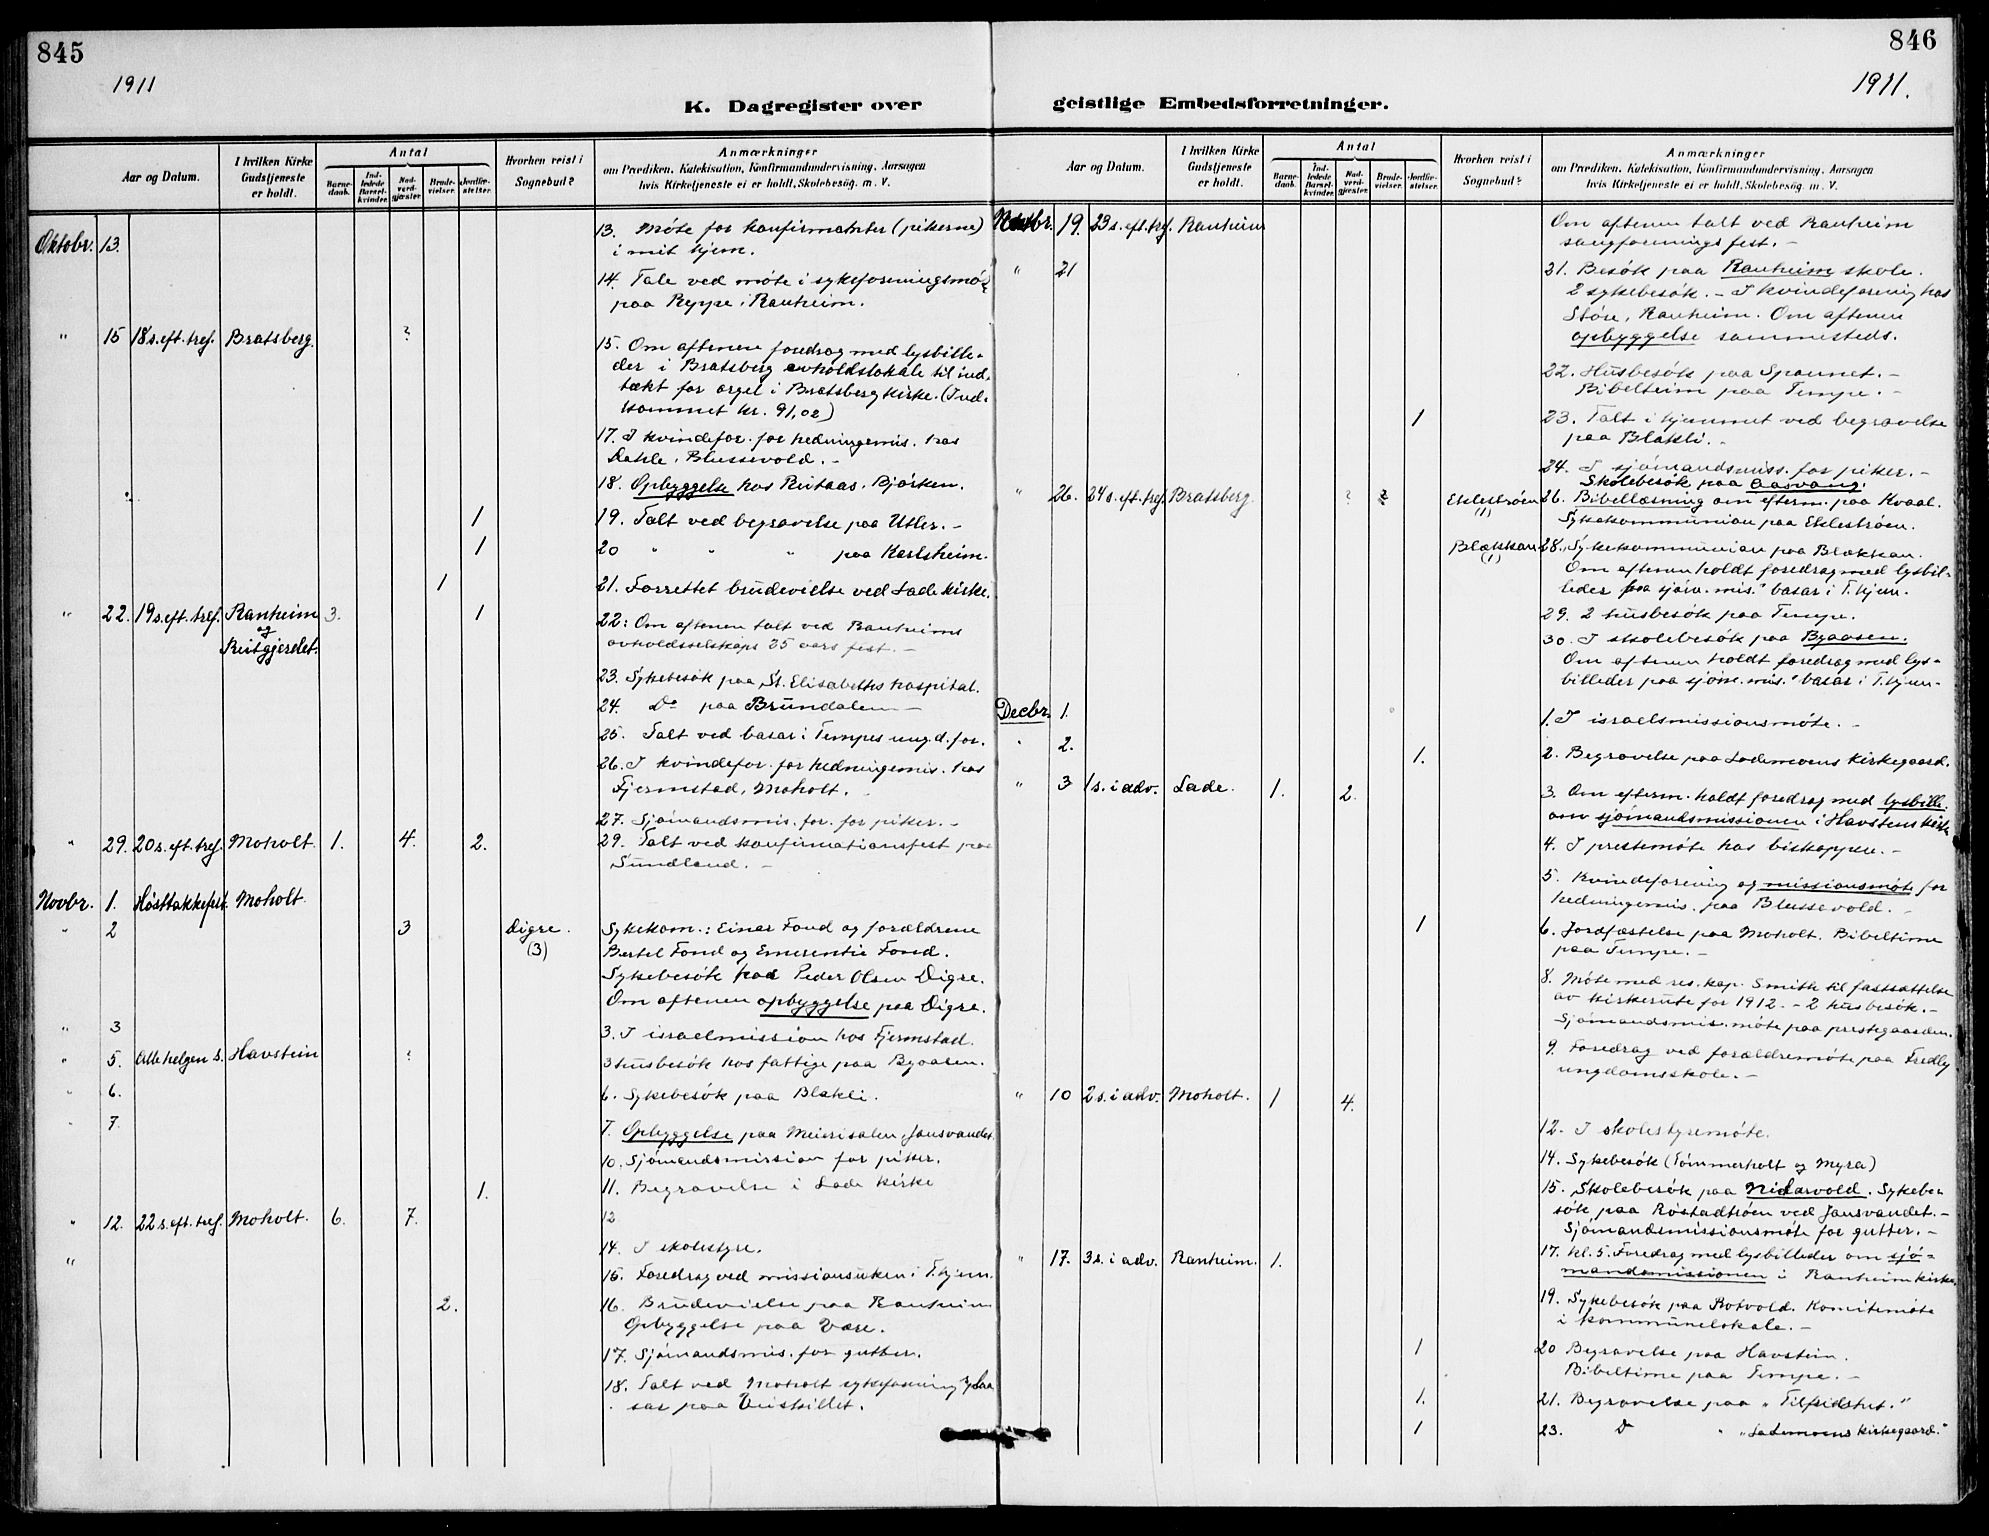 845
1911
K. Dagregister over
Aar og Datum.
I hvilken Kirke Gudstjeneste er holdt.
Antal
Barne-daab.
Ind-ledede Barsel-kvinder.
Nad-verd-gjæster.
Brude-vielser.
Jordfæ-stelser.
Hvorhen reist i Sognebud?
Anmærkninger
om Prædiken, Katekisation, Konfirmandundervisning, Aarsagen
hvis Kirketjeneste ei er holdt, Skolebesög, m. V.
Oktobr. 13.
13. Møte for konfirmanter (pikerne)
i mit hjem.
14. Tale ved møte i sykeforeningsmø-
paa Reppe i Ranheim.
" 15 18 s. eft. tref. Bratsberg. ?
15. Om aftenen foredrag med lysbille-
der i Bratsberg avholdslokale til ind-
tækt for orgel i Bratsberg kirke. (Ind-
kommet kr. 91,02)
17. I kvindefor. for hedningemis. hos
Dahle, Blussevold. -
18. Opbyggelse hos Rutaas, Björken.
1 19. Talt ved begravelse paa Utler. -
1 20 " " " paa Karlsheim.
1 21. Forrettet brudevielse ved Lade kirke.
" 22. 19 s. eft. tref. Ranheim 3. 1
og
Reitgjerdet.
22: Om aftenen talt ved Ranheims
avholdsselskaps 25 aars fest. -
23. Sykebesök paa St. Elisabeths hospital.
24. Do paa Brundalen -
25. Talt ved basar i Tempes ung.d. for.
26. I kvindefor. for hedningemis. hos
Fjermstad, Moholt. -
27. Sjömandsmis. for. for piker. -
" 29. 20 s. eft. tref. Moholt. 1. 4. 2.
29. Talt ved konfirmationsfest paa
Sundland. -
Novbr. 1. Høsttakkefest. Moholt.
" 2 3 Digre.
(3)
Sykekom.: Einar Fond og forældrene
Bertel Fond og Emerentie Fond.
Sykebesök hos Peder Olsen Digre.
Om aftenen opbyggelse paa Digre.
" 3
3. I israelmission hos Fjermstad.
" 5. Alle helgen s. Havstein ?
3 husbesök hos fattige paa Byaasen.
" 6.
6. Sykebesök paa Blakli.
" 7.
7. Opbyggelse paa Meierisalen, Jonsvandet.
10. Sjömandsmission for piker.
1. 11. Begravelse i Lade kirke
" 12. 22 s. eft. tref. Moholt. 6. 7.
12
14. I skolestyre.
"
15. Foredrag ved missionsuken i T.hjem.
2. 16. Brudevielse paa Ranheim
Opbyggelse paa Være.
17. Sjömandsmis. for gutter.
18. Talt ved Moholt sykeforenings ba
sar paa
846
1911.
geistlige Embedsforretninger.
Aar og Datum.
I hvilken Kirke Gudstjeneste er holdt.
Antal
Barne-daab.
Ind-ledede Barsel-kvinder.
Nad-verd-gjæster.
Brude-vielser.
Jordfæ-stelser.
Hvorhen reist i Sognebud?
Anmærkninger
om Prædiken, Katekisation, Konfirmandundervisning, Aarsagen
hvis Kirketjeneste ei er holdt, Skolebesög, m. V.
Novbr. 19. 23 s. eft. tref. Ranheim
Om aftenen talt ved Ranheim
sangforenings fest. -
" 21
21. Besök paa Ranheim skole.
2 sykebesök. - I kvindeforening hos
Støre, Ranheim. Om aftenen
opbyggelse sammesteds.
22. Husbesök paa Spannet. -
Bibeltime paa Tempe. -
1 23. Talt i hjemmet ved begravelse
paa Blakli. -
24. I sjömandsmiss. for piker. -
Skolebesök paa Aasvang.
" 26. 24 s. eft. tref. Bratsberg. ? ? Eklestrøen
(1)
26. Bibellæsning om efterm. paa Kvaal.
Sykekommunion paa Eklestrøen.
Blækkan
(1)
28. Sykekommunion paa Blækkan.
Om aftenen holdt foredrag med lysbil-
leder paa sjöm. mis." basar i T.hjem.
29. 2 husbesök paa Tempe.
30. I skolebesök paa Byaasen.
Om aftenen holdt foredrag med lys-
billeder paa sjöm. mis." basar i T.hjem.
Decbr. 1.
1. I israelsmissionsmøte. -
" 2. 1.
2. Begravelse paa Lademoens kirkegaard.
" 3 1 s. i adv. Lade. 1. 2.
3. Om efterm. holdt foredrag med lysbille
om sjömandsmissionen i Havstens kirke
4. I prestemøte hos biskoppen. -
5. Kvindeforening og missionsmøte for
hedningemis. paa Blussevold. -
1 6. Jordfæstelse paa Moholt. Bibeltime
paa Tempe. -
8. Møte med res. kap. Smith til fastsættelse
av kirkerute for 1912. - 2 husbesök. -
Sjömandsmis. møte paa prestegaarden.
9. Foredrag ved forældremøte paa Fredly
ungdomsskole. -
" 10 2 s. i adv. Moholt. 1 4.
12. I skolestyremøte.
14. Sykebesök (Tömmerholt og Myra)
15. Skolebesök paa Nidarvold. Sykebe
sök paa Rostadtrøen ved Jonsvandet. -
Sjömandsmissionsmøte for gutter. -
" 17. 3 s. i adv. Ranheim. 1.
17. kl. 5. Foredrag med lysbilleder om sjö-
mandsmissionen i Ranheim kirke
19. Sykebesök paa Rotvold. Komitemøte
i kommunelokale. -
1 20 Begravelse paa Havstein.
Bibeltime paa Tempe. -
1. 21. Begravelse paa "Tilfredshet."
1 23. Do " "Lademoens kirkegaard."